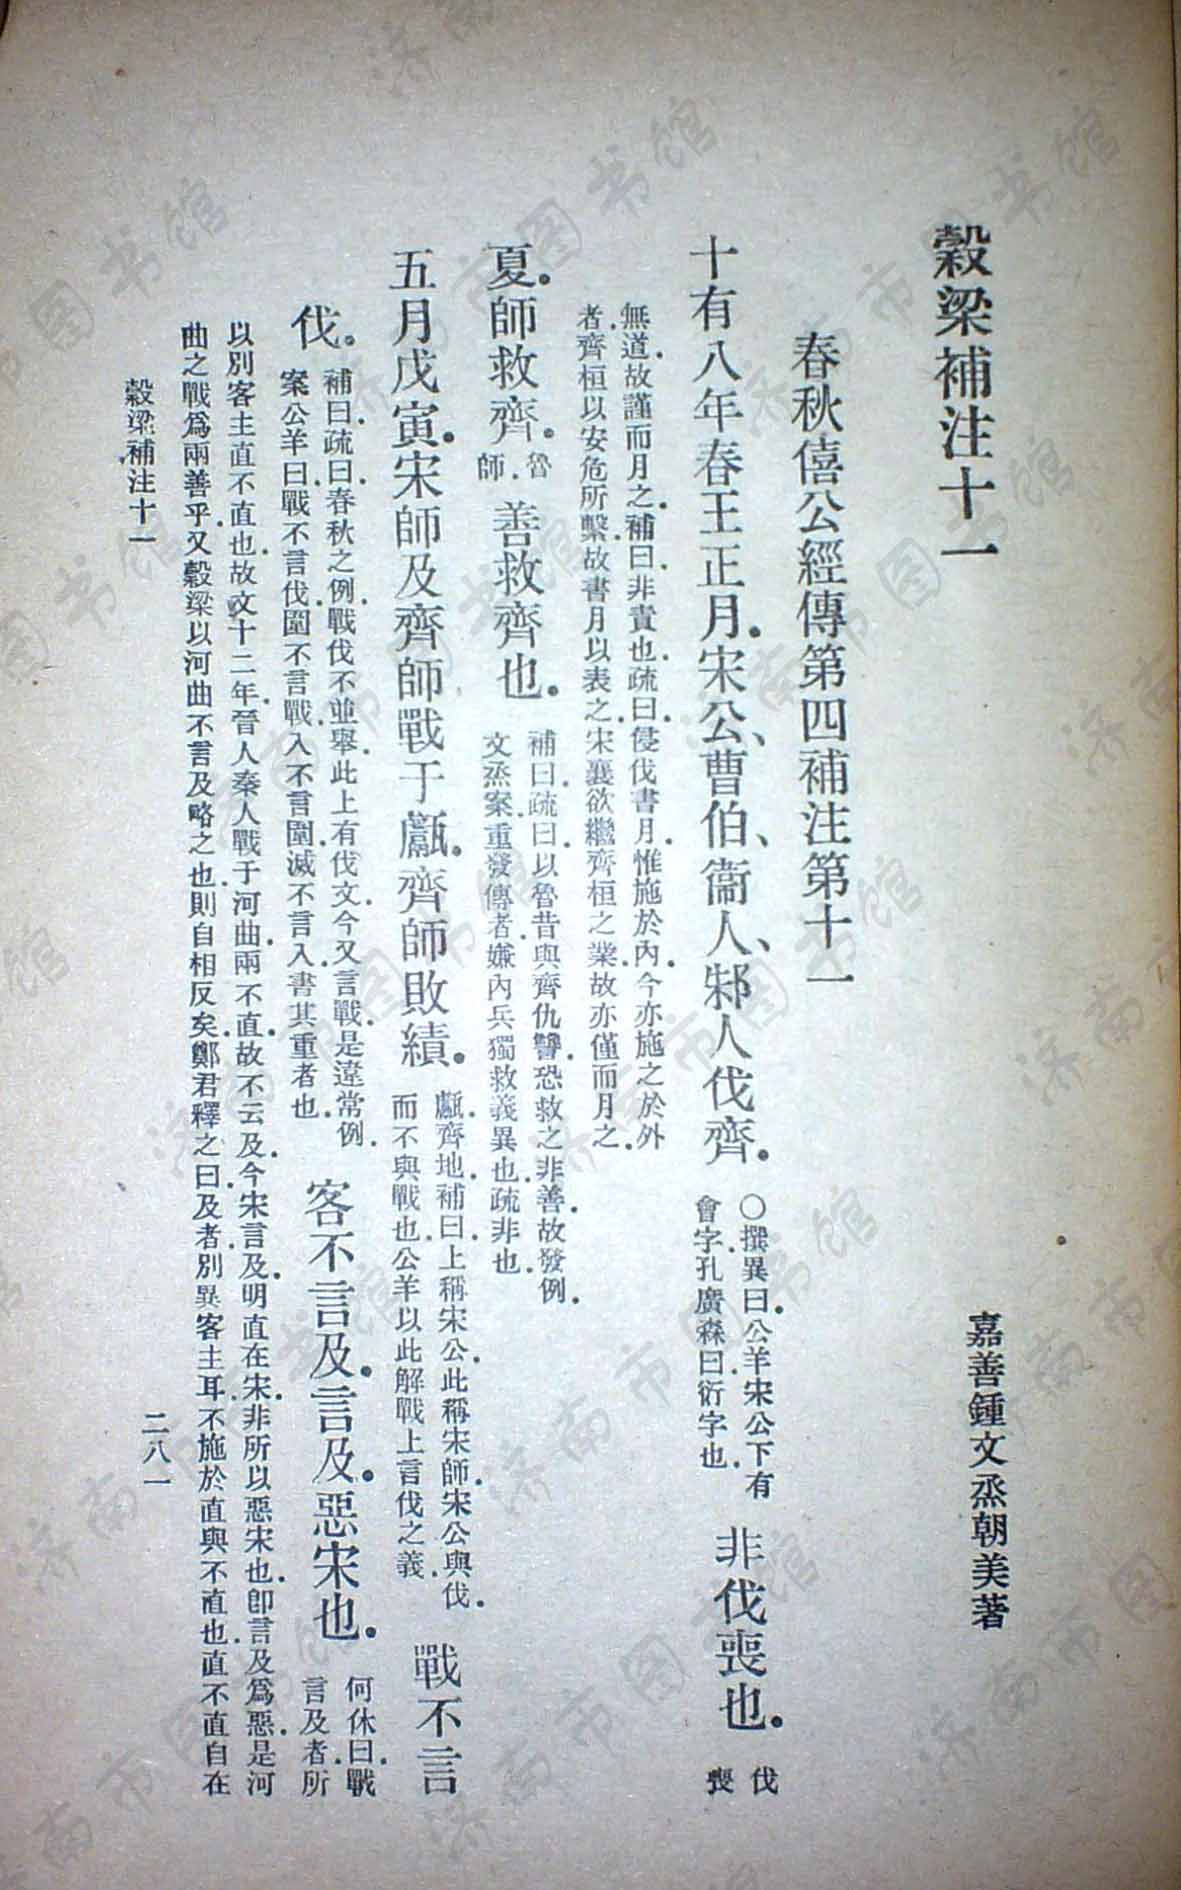 穀梁補注十一
嘉善鍾文烝朝美著
春秋僖公經傳第四補注第十一
十有八年春王正月．宋公、曹伯、衞人、邾人伐齊．
○撰異曰．公羊宋公下有
會字．孔廣森曰．衍字也．
非伐喪也．
伐
喪
無道．故謹而月之．補曰．非責也．疏曰．侵伐書月．惟施於內．今亦施之於外
者．齊桓以安危所繫．故書月以表之．宋襄欲繼齊桓之業．故亦僅而月之．
夏．師救齊．
魯
師．
善救齊也．
補曰．疏曰．以魯昔與齊仇讐．恐救之非善．故發例．
文烝案．重發傳者．嫌內兵獨救義異也．疏非也．
五月戊寅．宋師及齊師戰于甗．齊師敗績．
甗．齊地．補曰．上稱宋公．此稱宋師．宋公與伐．
而不與戰也．公羊以此解戰上言伐之義．
戰不言
伐．
補曰．疏曰．春秋之例．戰伐不並舉．此上有伐文．今又言戰．是違常例．
案公羊曰．戰不言伐．圍不言戰．入不言圍．滅不言入．書其重者也．
客不言及．言及．惡宋也．
何休曰．戰
言及者．所
以別客主直不直也．故文十二年．晉人秦人戰于河曲．兩不直．故不云及．今宋言及．明直在宋．非所以惡宋也．卽言及爲惡．是河
曲之戰爲兩善乎．又穀梁以河曲不言及．略之也．則自相反矣．鄭君釋之曰．及者．別異客主耳．不施於直與不直也．直不直自在
穀梁補注十一
二八一
济南市图书馆